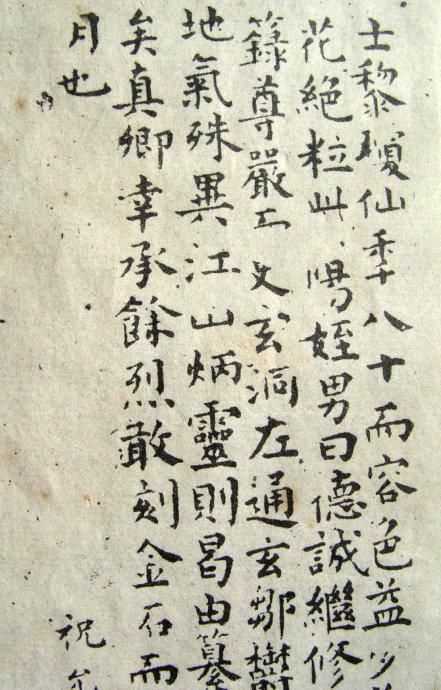 士黎瓊仙年八十而容色益少
花絕粒此陽姪男曰德誠繼修
籙尊嚴而史玄洞左通玄鄒鬱
地氣殊異江山炳靈則曷由纂
矣真卿幸承餘烈敢刻金石而
月也
祝允